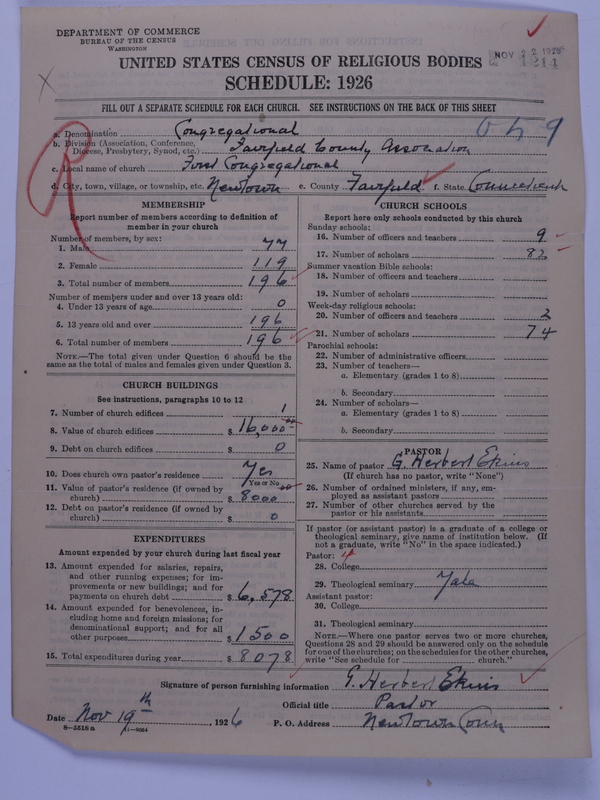 DEPARTMENT OF COMMERCE
BUREAU OF THE CENSUS
WASHINGTON
NOV 22 1926
UNITED STATES CENSUS OF RELIGIOUS BODIES
SCHEDULE: 1926
FILL OUT A SEPARATE SCHEDULE FOR EACH CHURCH. SEE INSTRUCTIONS ON THE BACK OF THIS SHEET
R
a. Denomination Congregational
b. Division (Association, Conference, Diocese, Presbytery, Synod, etc.) Fairfield County Association
c. Local name of church First Congregational
d. City, town, village, or township, etc. Newtown e. County Fairfield f. State Connecticut
MEMBERSHIP
Report number of members according to definition of
member in your church
Number of members, by sex:
1. Male 77
2. Female 119
3. Total number of members 196
Number of members under and over 13 years old:
4. Under 13 years of age 0
5. 13 years old and over 196
6. Total number of members 196
NOTE.—The total given under Question 6 should be the
same as the total of males and females given under Question 3.
CHURCH BUILDINGS
See instructions, paragraphs 10 to 12
7. Number of church edifices 1
8. Value of church edifices $ 16,000.00
9. Debt on church edifices $ 0
10. Does church own pastor's residence Yes
Yes or No
11. Value of pastor's residence (if owned by
church) $ 8000
12. Debt on pastor's residence (if owned by
church) $ 0
EXPENDITURES
Amount expended by your church during last fiscal year
13. Amount expended for salaries, repairs,
and other running expenses; for im-
provements or new buildings; and for
payments on church debt $ 6,578
14. Amount expended for benevolences, in-
cluding home and foreign missions; for
denominational support; and for all
other purposes $ 1500
15. Total expenditures during year $ 8078
CHURCH SCHOOLS
Report here only schools conducted by this church
Sunday schools:
16. Number of officers and teachers 9
17. Number of scholars 82
Summer vacation Bible schools:
18. Number of officers and teachers
19. Number of scholars
Week-day religious schools:
20. Number of officers and teachers 2
21. Number of scholars 74
Parochial schools:
22. Number of administrative officers
23. Number of teachers—
a. Elementary (grades 1 to 8)
b. Secondary
24. Number of scholars—
a. Elementary (grades 1 to 8)
b. Secondary
PASTOR
25. Name of pastor G. Herbert Ekins
(If church has no pastor, write "None")
26. Number of ordained ministers, if any, em-
ployed as assistant pastors
27. Number of other churches served by the
pastor or his assistants
If pastor (or assistant pastor) is a graduate of a college or
theological seminary, give name of institution below. (If
not a graduate, write "No" in the space indicated.)
Pastor:
28. College
29. Theological seminary Yale
Assistant pastor:
30. College
31. Theological seminary
NOTE.—Where one pastor serves two or more churches,
Questions 28 and 29 should be answered only on the schedule
for one of the churches; on the schedules for the other churches,
write "See schedule for church."
Signature of person furnishing information G. Herbert Ekins
Official title Pastor
Date Nov 19th, 1926 P. O. Address Newtown Conn
8-5518 a 11-9064